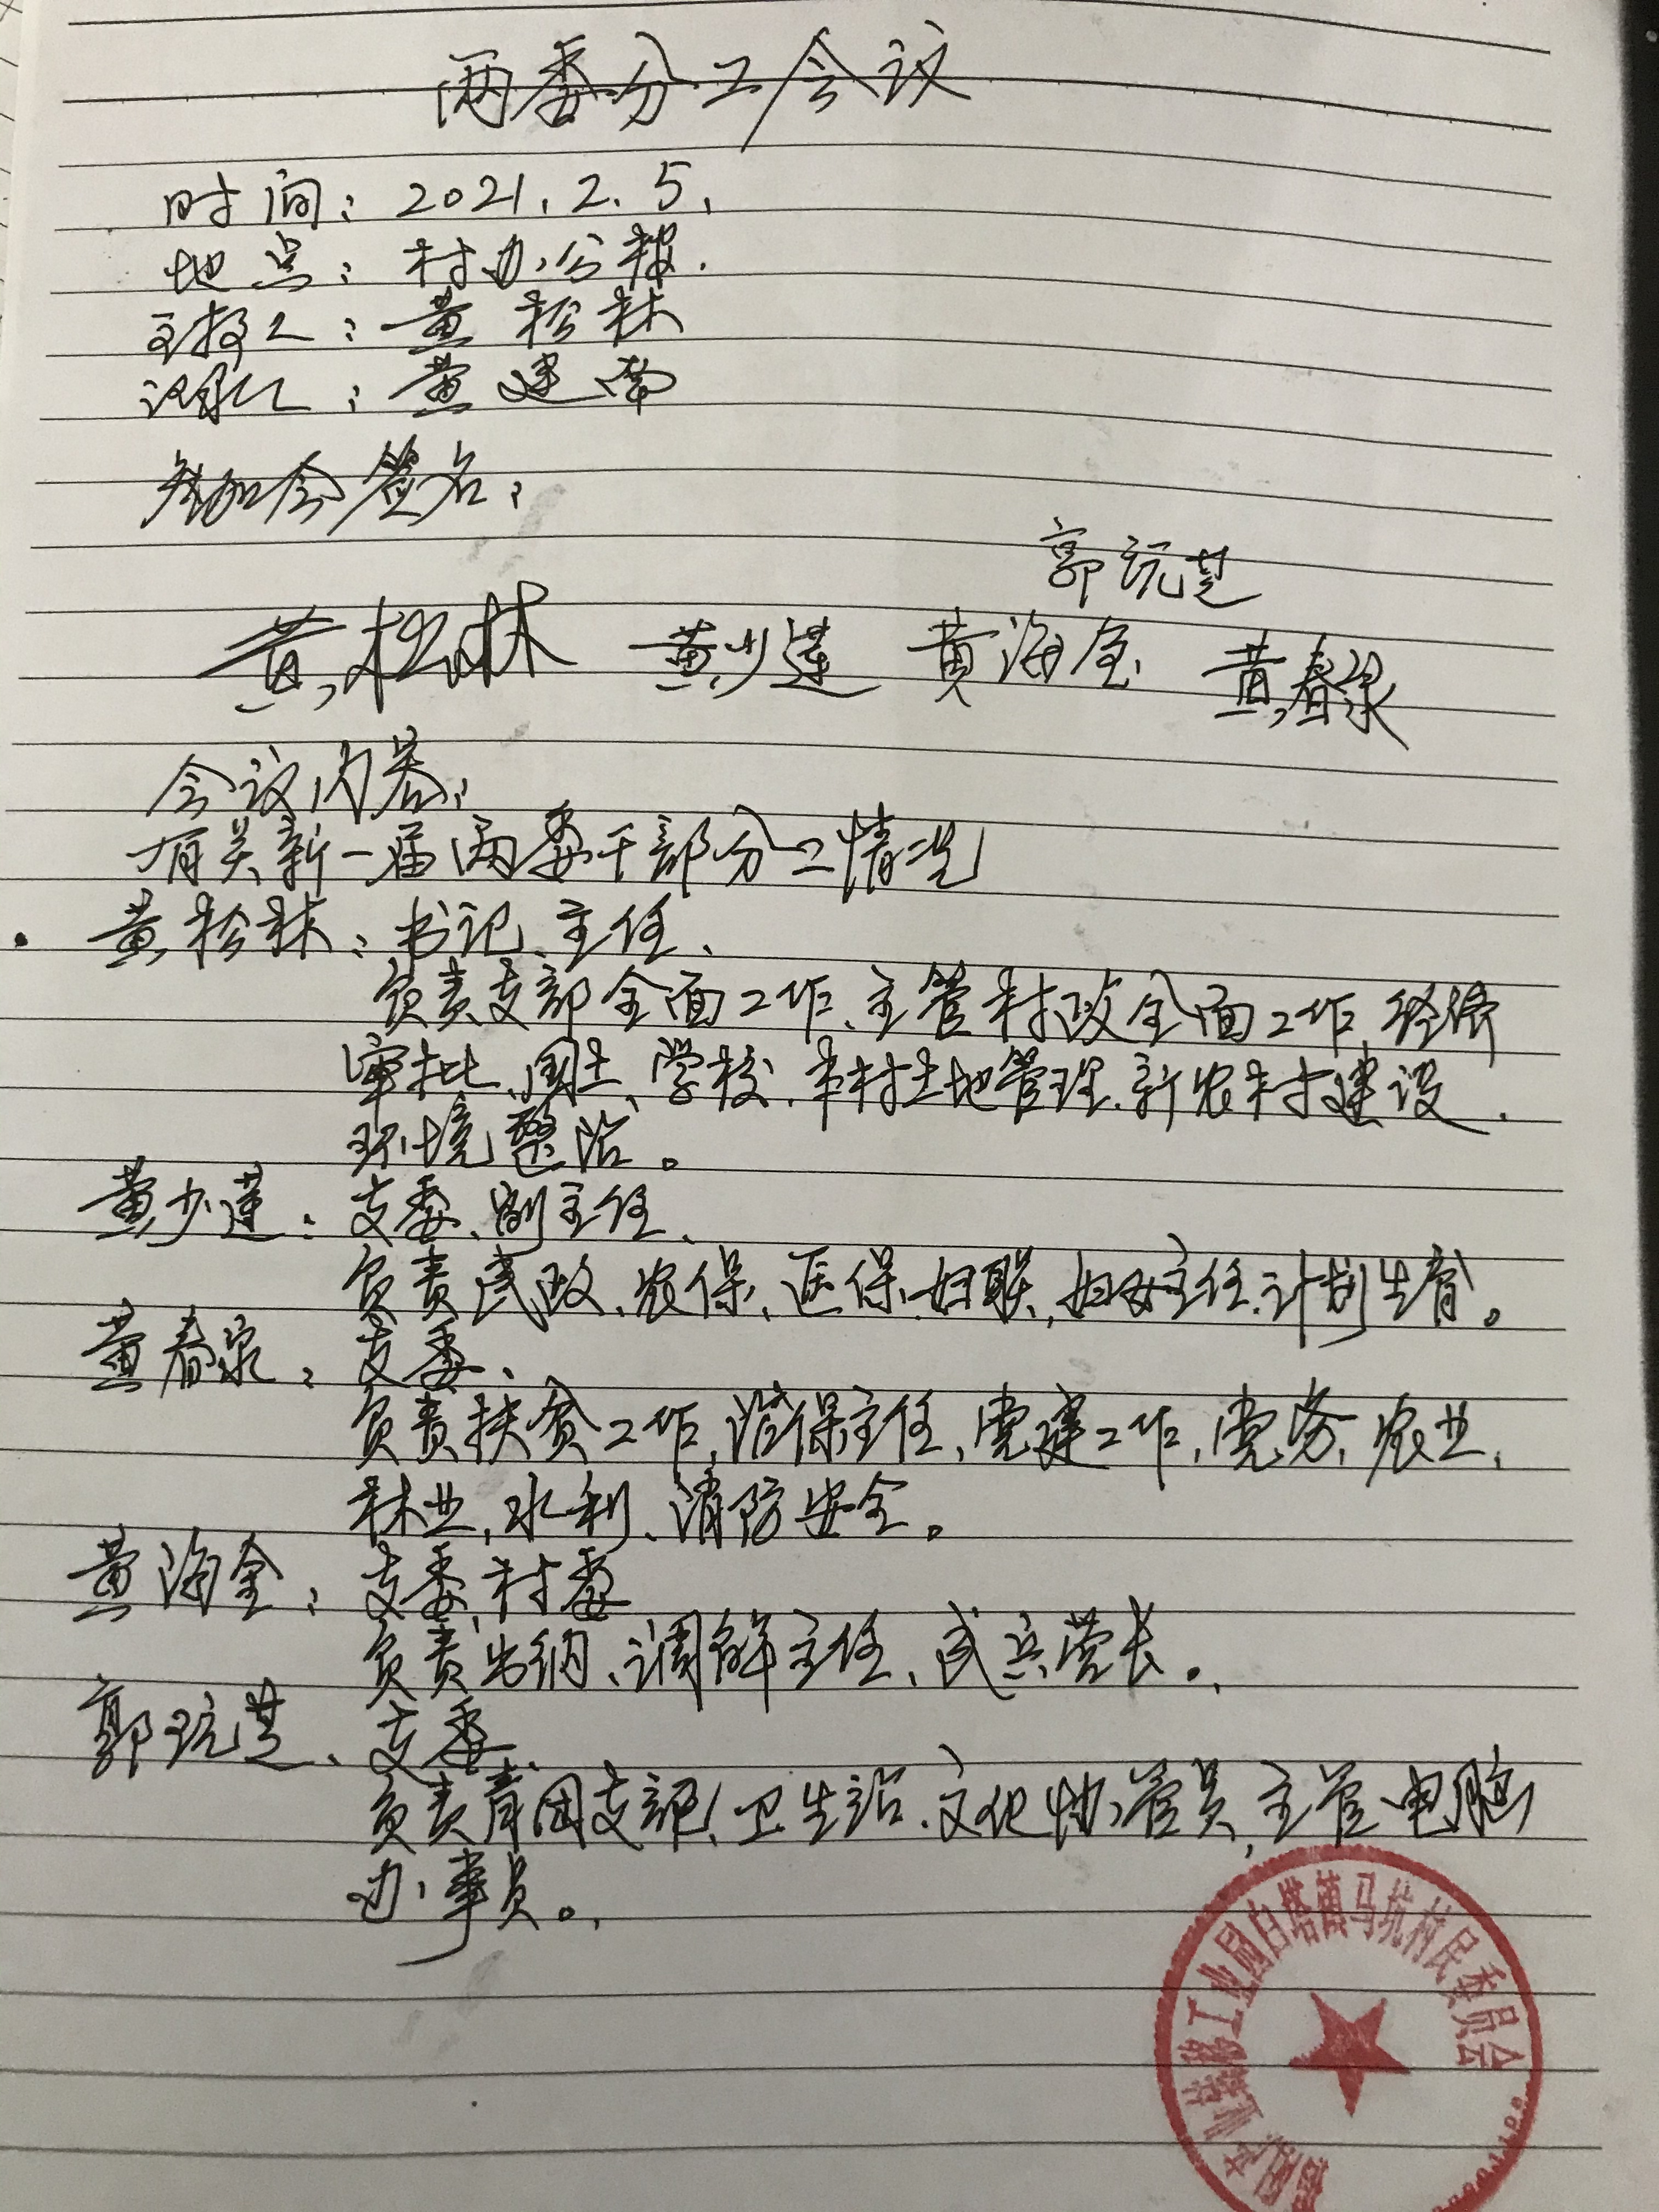 两委分工会议
时间：2021.2.5.
地点：村办公楼.
主持人：黄松林
记录人：黄建南
参加会签名：
郭玩芝
黄松林 黄少莲 黄海全 黄春泉
会议内容：
有关新一届两委干部分工情况
黄松林：书记、主任、
负责支部全面工作、主管村政全面工作、经济
审批、国土、学校、本村土地管理、新农村建设、
环境整治。
黄少莲：支委、副主任、
负责民政、农保、医保、妇联、妇女主任、计划生育。
黄春泉：支委、
负责扶贫工作、治保主任、党建工作、党务、农业、
林业、水利、消防安全。
黄海全：支委、村委
负责出纳、调解主任、民兵营长。
郭玩芝、支委、
负责青团支部、卫生站、文化协管员、主管电脑
办事员。
产业转移工业园白塔镇马坑村民委员会